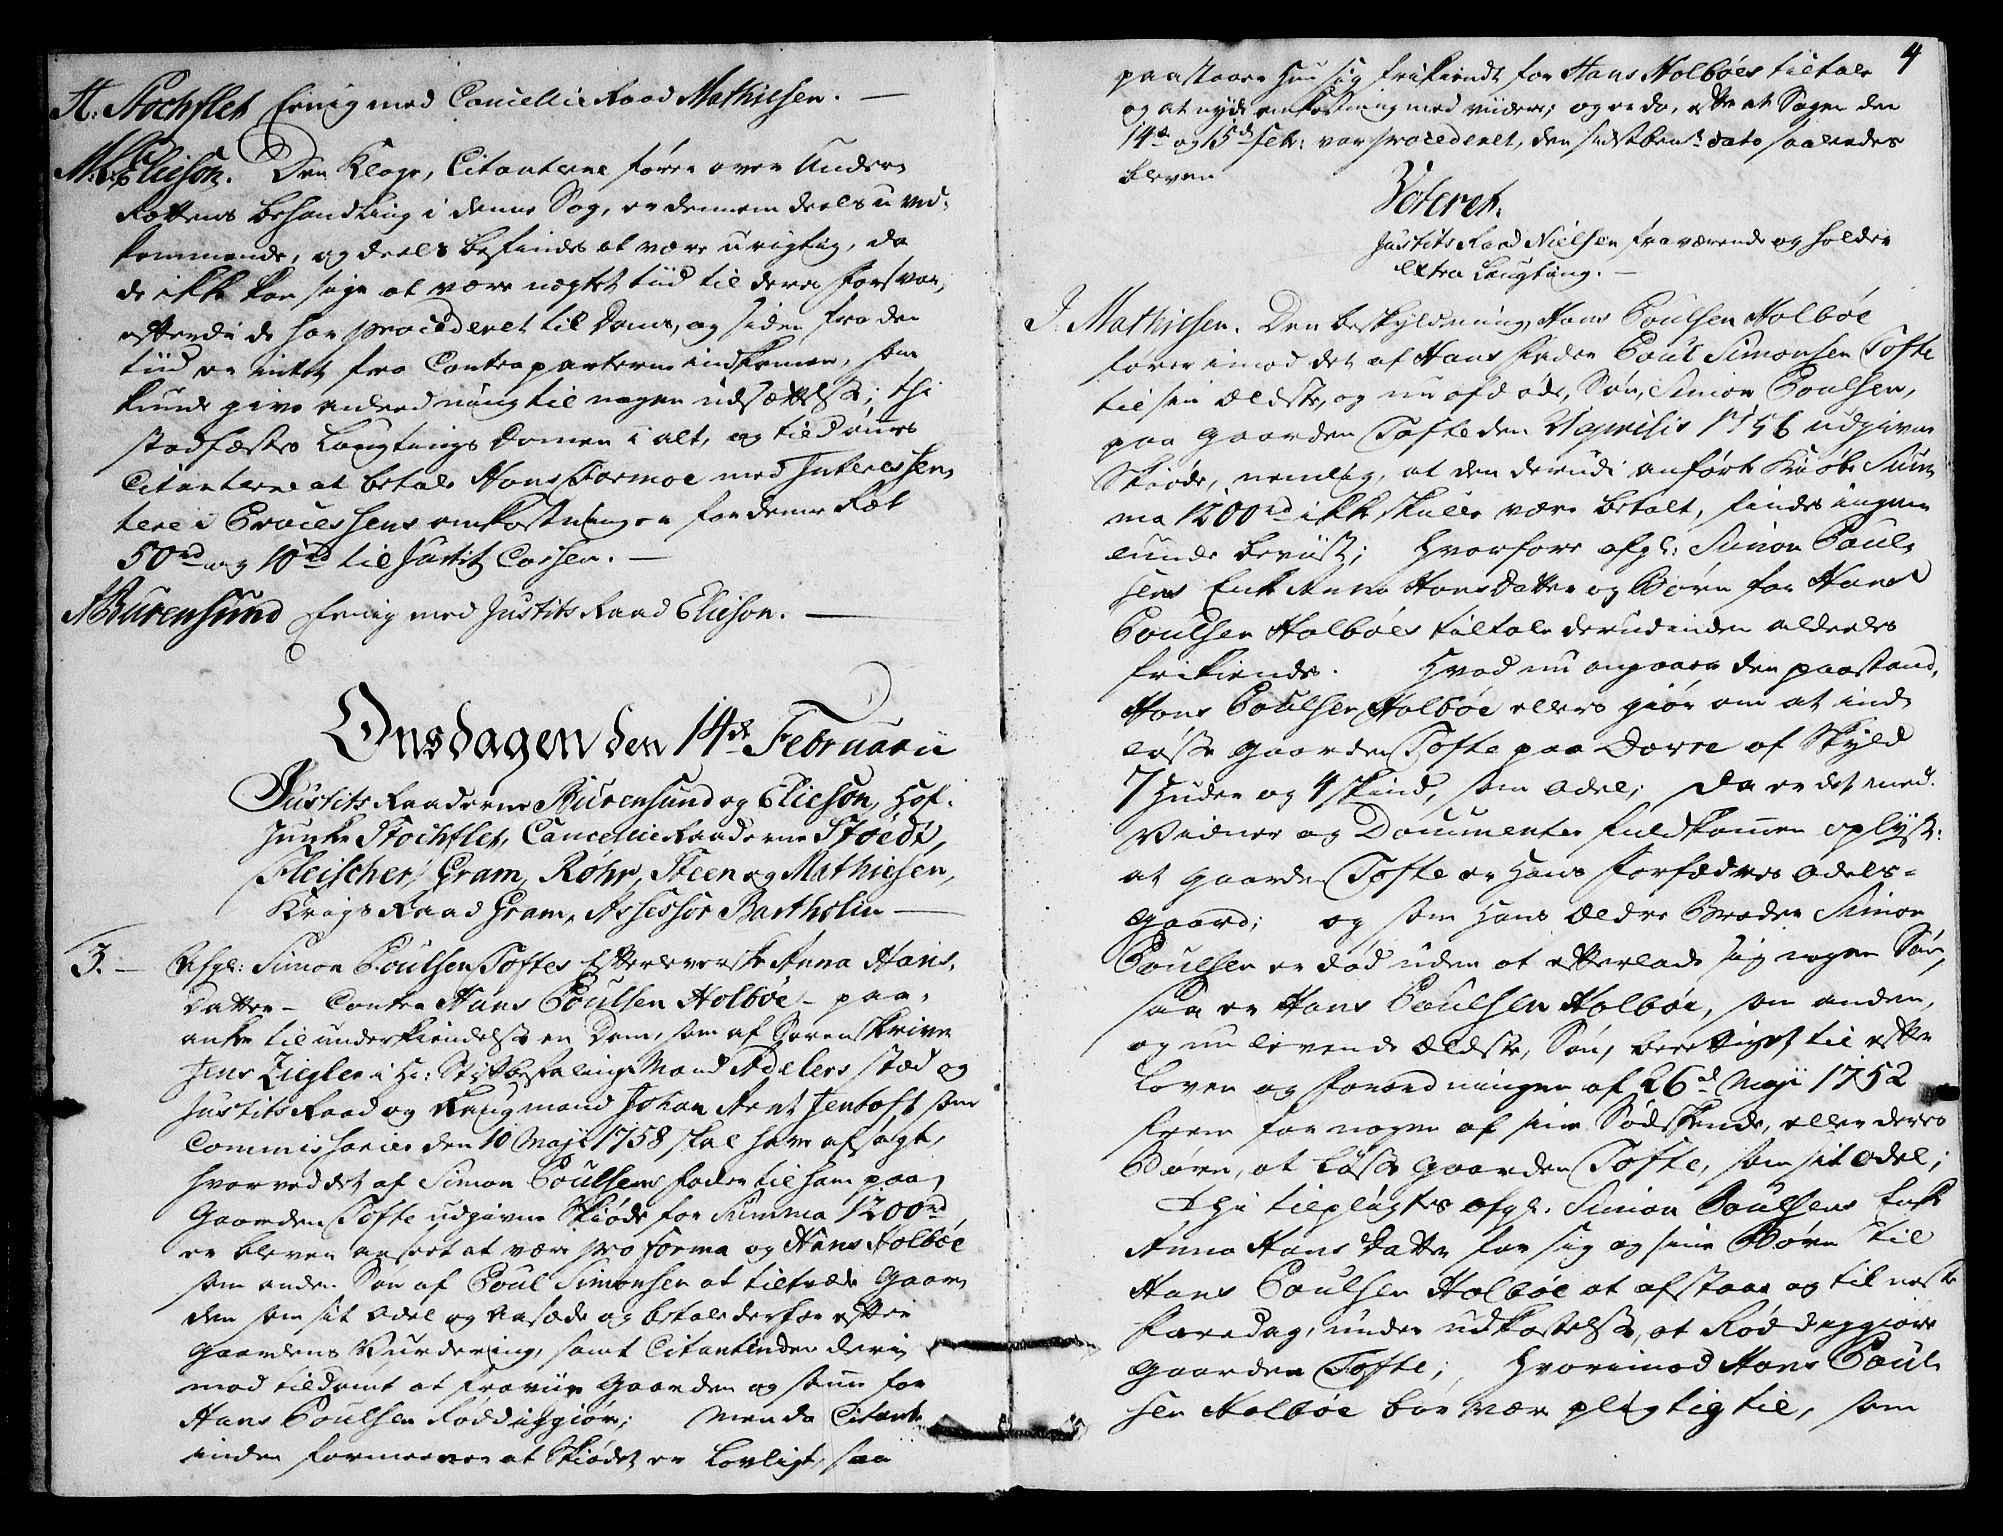 H: Stochflet Eenig med Cancellie Raad Mathiesen. —
M: Elieson. Den Klage, Citanterne fører over Under-
Rettens behandling i denne Sag, er dennem deels uved-
kommende, og deels befindes at være urigtig, da
de ikke kan sige at være nægtet tiid til deres forsvar,
efterdi de har procederet til Doms, og siden fra den
tiid er intet fra Contraparterne indkommen, som
kunde give anledning til nogen udsættelse; thi
stadfæstes Laugtings Dommen i alt, og tildømes
Citanterne at betale Hans Formoe med Interessen-
tere i Processens omkostninger for denne Ræt
50 rd og 10 rd til Justitz Cassen. —
A Burensund Eenig med Justits Raad Elieson. —
Onsdagen den 14de Februarii
Justits Raaderne Burensund og Elieson, Hof-
Junker Stochflet, Cancellie Raaderne Stoedt,
Fleischer, Gram, Röhr, Steen og Mathiesen,
Krigs Raad Gram, Assessor Bartholin —
3. — Afgl: Simon Poulsen Toftes Efterleverske Anna Hans-
Datter — Contra Hans Poulsen Holbøe — paa-
anke til underkiendelse en Dom, som af Sorenskriver
Jens Ziegler i Hr: Stiftbefalings Mand Adelers stæd og
Justits Raad og Laugmand Johan Arnt Jentoft som
Commissarier den 10 Maji 1758 skal have afsagt,
hvorved det af Simon Poulsens fader til ham paa
Gaarden Tofte udgivne Skiøde for Summa 1200 rd
er bleven anseet at være pro forma og Hans Holbøe
som anden Søn af Poul Simonsen at tiltræde Gaar-
den som sit Odel og Aasæde og betale derfor efter
Gaardens Vurdering, samt Citantinden deri-
mod tildømt at fravige Gaarden og samme for
Hans Poulsen Røddiggiøre; Men da Citant-
inden formeener at Skiødet er Lovligt, saa
4
paastaaer Hun sig frikiendt for Hans Holbøes tiltale
og at nyde omkostning med viidere; og er da, efter at Sagen den
14de og 15de Febr: var procederet, den sidstben:te dato saaledes
bleven
Voteret.
Justits Raad Nielsen fraværende og holder
Extra Laugting. —
J. Mathiesen. Den beskyldning, Hans Poulsen Holbøe
fører imod det af Hans fader Poul Simonsen Tofte
til sin Ældste, og nu afdøde, Søn, Simon Poulsen,
paa Gaarden Tofte den Aprilis 1756 udgivne
Skiøde, nemlig, at den derudi anførte Kiøbe Sum-
ma 1200 rd ikke skulle være betalt, findes ingen-
lunde beviist; Hvorfore afgl: Simon Poul-
sens Enke Anna Hans Datter og Børn for Hans
Poulsen Holbøes tiltale derudinden aldeeles
frikiendes. Hvad nu angaaer den paastand,
Hans Poulsen Holbøe ellers giør om at ind-
løse Gaarden Tofte paa Dovre af Skyld
7 Huder og 4 skind, som Odel; Da er det med
Vidner og Documenter fuldkommen oplyst:
at Gaarden Tofte er Hans forfædres Odels-
gaard; og som Hans Ældre Broder Simon
Poulsen er død uden at efterlade sig nogen Søn,
saa er Hans Poulsen Holbøe, som anden,
og nu levende Ældste, Søn, berettiget til efter
Loven og Forordningen af 26de Maji 1752
frem for nogen af sine Sødskende, eller deres
Børn, at løse Gaarden Tofte, som sit Odel;
Thi tilpligtes afgl. Simon Poulsens Enke
Anna Hans Datter for sig og sine Børn til
Hans Poulsen Holbøe at afstaae og til neste
faredag, under udkastelse, at Røddiggiøre
Gaarden Tofte; Hvorimod Hans Poul-
sen Holbøe bør være pligtig til, som